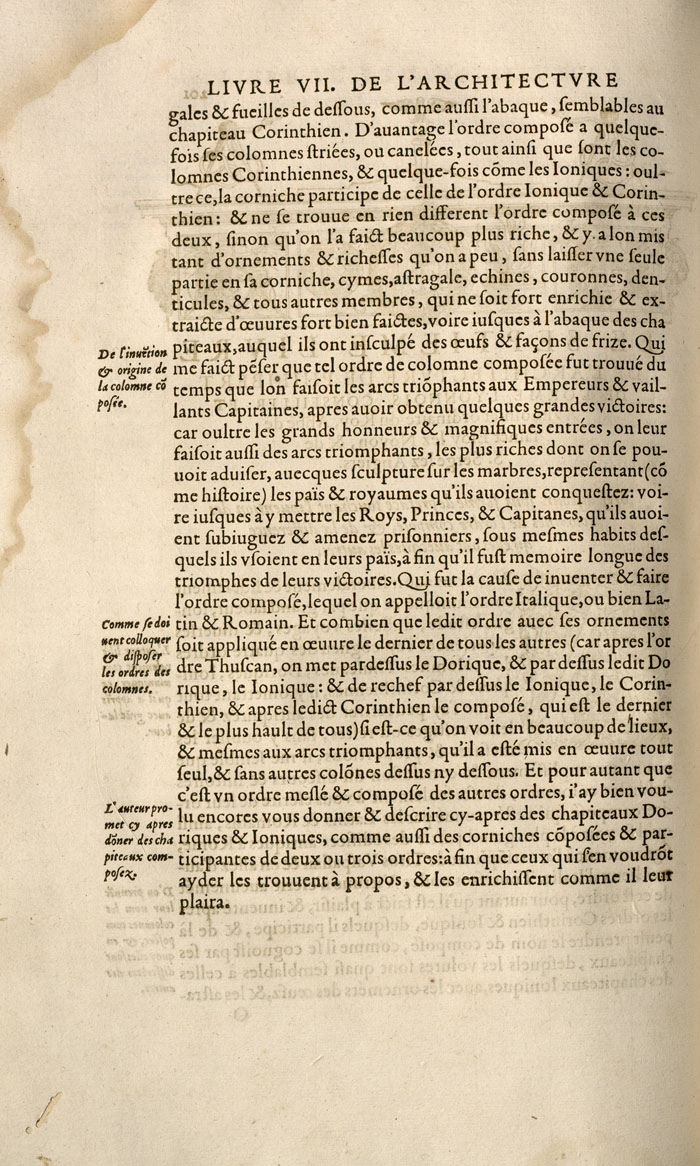 LIVRE VII. DE L'ARCHITECTVRE
gales & fueilles de deſſous, comme auſſi l'abaque, ſemblables au
chapiteau Corinthien. D'auantage l'ordre compoſé a quelque-
fois ſes colomnes ſtriées, ou canelées, tout ainſi que ſont les co-
lomnes Corinthiennes, & quelque-fois cõme les Ioniques: oul-
tre ce, la corniche participe de celle de l'ordre Ionique & Corin-
thien: & ne ſe trouue en rien different l'ordre compoſé à ces
deux, ſinon qu'on l'a faict beaucoup plus riche, & y a lon mis
tant d'ornements & richeſſes qu'on a peu, ſans laiſſer vne ſeule
partie en ſa corniche, cymes, aſtragale, echines, couronnes, den-
ticules, & tous autres membres, qui ne ſoit fort enrichie & ex-
traicte d'œuures fort bien faictes, voire iuſques à l'abaque des cha
De l'inuẽtion
& origine de
la colomne cõ
poſée.
piteaux, auquel ils ont inſculpé des œufs & façons de frize. Qui
me faict pẽſer que tel ordre de colomne compoſée fut trouué du
temps que lon faiſoit les arcs triõphants aux Empereurs & vail-
lants Capitaines, apres auoir obtenu quelques grandes victoires:
car oultre les grands honneurs & magnifiques entrées, on leur
faiſoit auſſi des arcs triomphants, les plus riches dont on ſe pou-
uoit aduiſer, auecques ſculpture ſur les marbres, repreſentant (cõ
me hiſtoire) les païs & royaumes qu'ils auoient conqueſtez: voi-
re iuſques à y mettre les Roys, Princes, & Capitanes, qu'ils auoi-
ent ſubiuguez & amenez priſonniers, ſous meſmes habits deſ-
quels ils vſoient en leurs païs, à fin qu'il fuſt memoire longue des
triomphes de leurs victoires. Qui fut la cauſe de inuenter & faire
l'ordre compoſé, lequel on appelloit l'ordre Italique, ou bien La-
Comme ſe doi
uent colloquer
& diſpoſer
les ordres des
colomnes.
tin & Romain. Et combien que ledit ordre auec ſes ornements
ſoit appliqué en œuure le dernier de tous les autres (car apres l'or
dre Thuſcan, on met pardeſſus le Dorique, & par deſſus ledit Do
rique, le Ionique: & de rechef par deſſus le Ionique, le Corin-
thien, & apres ledict Corinthien le compoſé, qui eſt le dernier
& le plus hault de tous) ſi eſt-ce qu'on voit en beaucoup de lieux,
& meſmes aux arcs triomphants, qu'il a eſté mis en œuure tout
ſeul, & ſans autres colõnes deſſus ny deſſous. Et pour autant que
c'eſt vn ordre meſlé & compoſé des autres ordres, i'ay bien vou-
L'auteur pro-
met cy apres
dõner des cha
piteaux com-
poſez.
lu encores vous donner & deſcrire cy-apres des chapiteaux Do-
riques & Ioniques, comme auſſi des corniches cõpoſées & par-
ticipantes de deux ou trois ordres: à fin que ceux qui ſ'en voudrõt
ayder les trouuent à propos, & les enrichiſſent comme il leur
plaira.